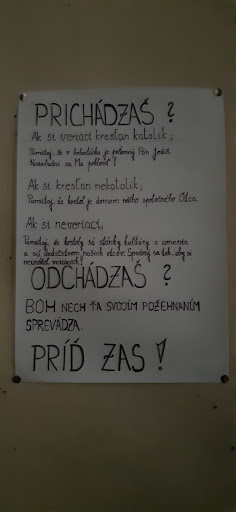 PRICHÁDZAŠ ?
Ak si veriaci kresťan katolík,
Pamätaj, že v bohostánku je prítomný Pán Ježiš.
Nezabudni sa Mu pokloniť!
Ak si kresťan nekatolík,
Pamätaj, že kostol je domom nášho spoločného Otca.
Ak si neveriaci,
Pamätaj, že kostoly sú stánky kultúry a umenia
a sú dedičstvom našich otcov. Správaj sa tak, aby si
neurážal veriacich!
ODCHÁDZAŠ ?
BOH NECH ŤA SVOJÍM POŽEHNANÍM
SPREVÁDZA.
PRÍĎ ZAS !